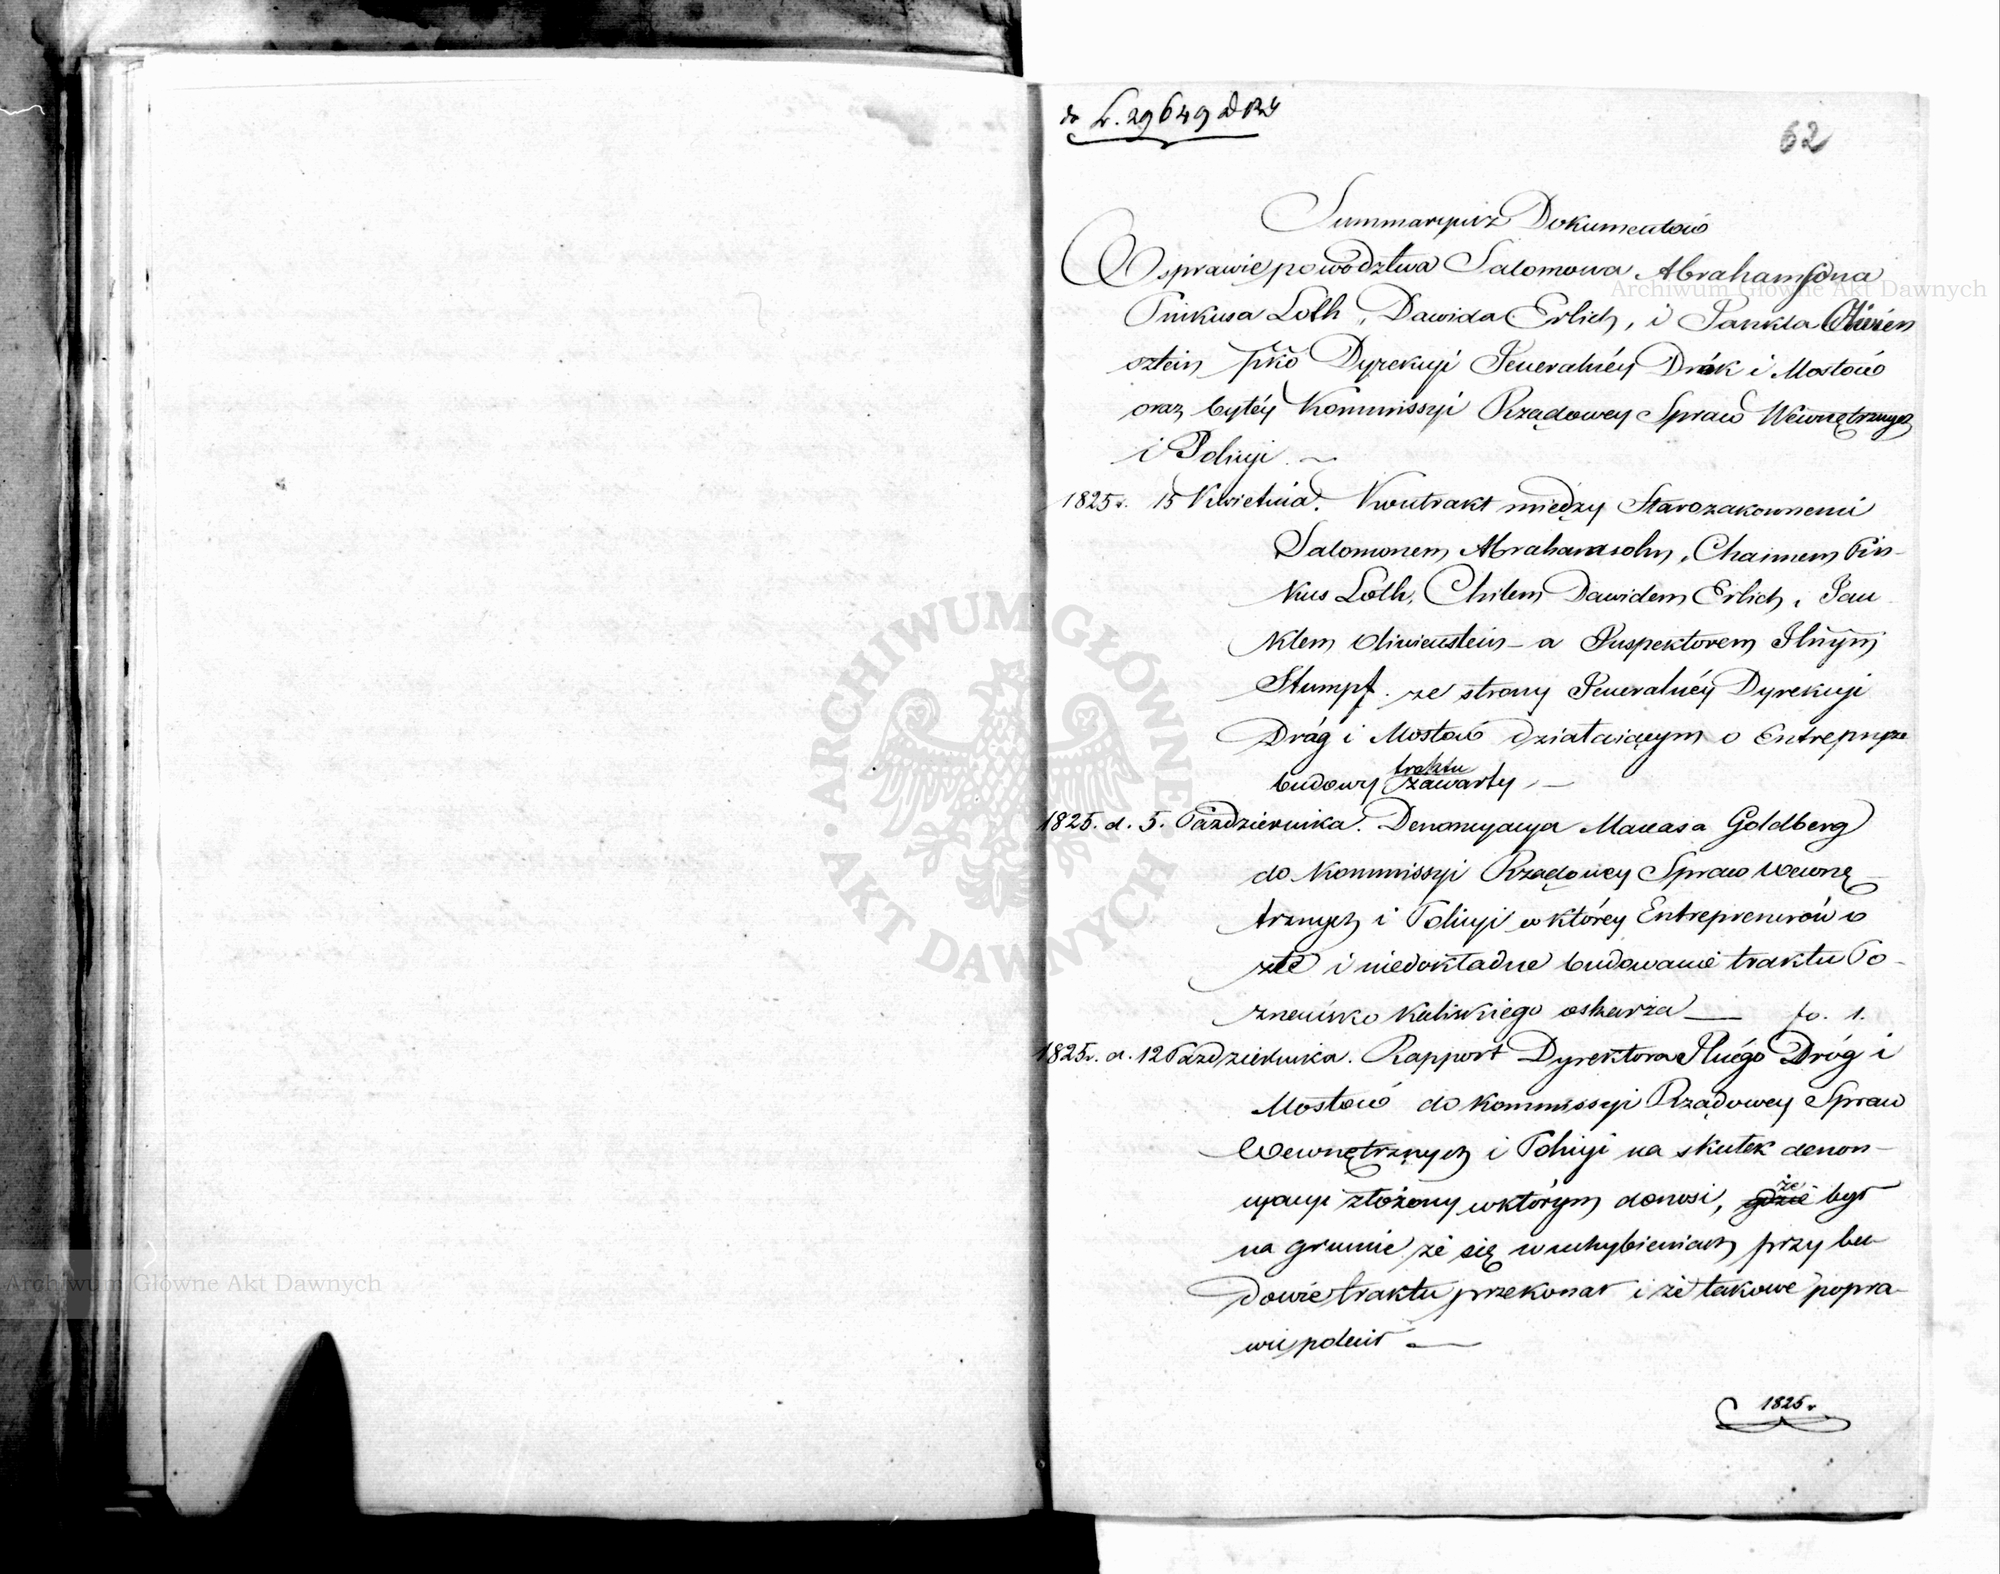 do L. 29649 D R D
62
Summaryusz Dokumentów
W sprawie powództwa Salomona Abrahamsona
Pinkusa Loth, Dawida Erlich, i Jankla Oliwien
sztein pko Dyrekcyi Generalnéy Drók i Mostów
oraz byłéy Kommissyi Rządowey Spraw Wewnętrznych
i Policyi. ~
1825 r. 15 Kwietnia. Kontrakt między Starozakonnemi
Salomonem Abrahamsohn, Chaimem Pin-
kus Loth, Chilem Dawidem Erlich, Jan
klem Oliwienstein – a Inspektorem Jlnym
Stumpf. ze strony Generalnéy Dyrekcyi
Dróg i Mostów działaiącym o Entrepryze
traktu
budowy zawarty. —
1825. d. 5. Października. Denoncyacya Manasa Goldberg
do Kommissyi Rządowey Spraw Wewnę
trznych i Policyi w którey Entreprenerów o
złe i niedokładne budowanie traktu Po-
znańsko Kaliskiego oskarża — fo. 1.
1825 r. d. 12 Października. Rapport Dyrektora Jlnégo Dróg i
Mostów do Kommissyi Rządowey Spraw
Wewnętrznych i Policyi na skutek denon-
cyacyi złożony w którym donosi,
że
gdzie był
na gruncie że się w uchybieniach przy bu
dowie traktu przekonał i że takowe popra-
wić polecił —
1825 r.
Archiwum Główne Akt Dawnych
ARCHIWUM GŁÓWNE
AKT DAWNYCH
Archiwum Główne Akt Dawnych